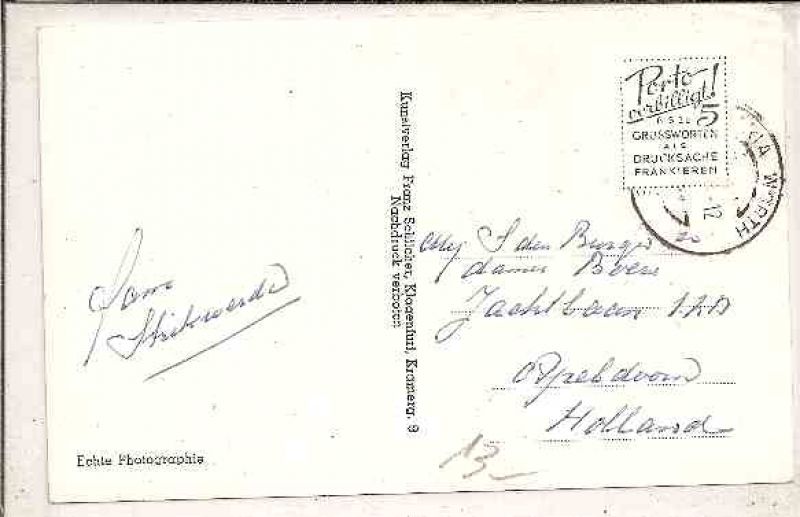 Porto
verbilligt!
BIS ZU 5
GRUSSWORTEN
ALS
DRUCKSACHE
FRANKIEREN
WÖRTH
12
Kunstverlag Franz Schilcher, Klagenfurt, Kramerg. 9
Nachdruck verboten
S den Burger
dames Boere
Jachtlaan
Apeldoorn
Holland
Fam
Strikwerda
Echte Photographie
13-